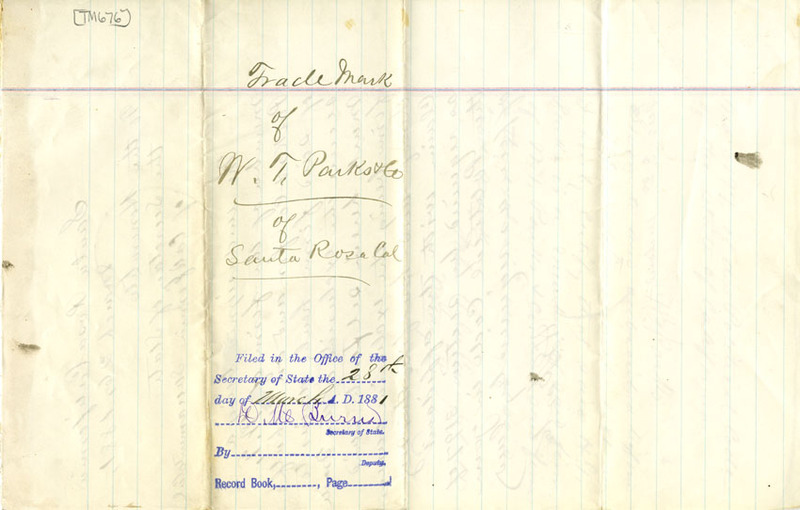 [TM676]
Trade Mark
of
W. T. Parks & Co
of
Santa Rosa Cal
Filed in the Office of the
Secretary of State the 28th
day of March A. D. 1881
D. M. Burns
Secretary of State.
By
Deputy.
Record Book, , Page